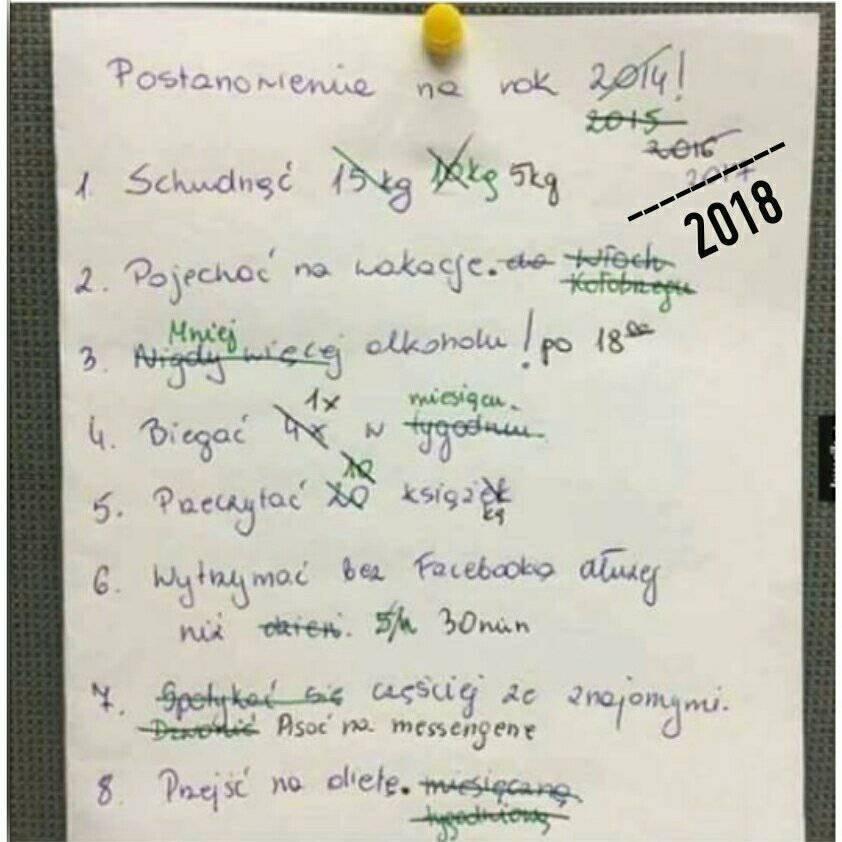 Postanowienia na rok 2014!
2015
2016
2017
2018
1. Schudnąć 15kg 10kg 5kg
2. Pojechać na wakacje. do Włoch
Kołobrzegu
Mniej
3. Nigdy więcej alkoholu! po 18⁰⁰
1x miesiącu.
4. Biegać 4x w tygodniu.
10
5. Przeczytać 20 książek
kę
6. Wytrzymać bez Facebooka dłużej
niż dzień. 5h 30min
7. Spotykać się częściej ze znajomymi.
Dzwonić Pisać na messengerze
8. Przejść na dietę. miesięczną.
tygodniową